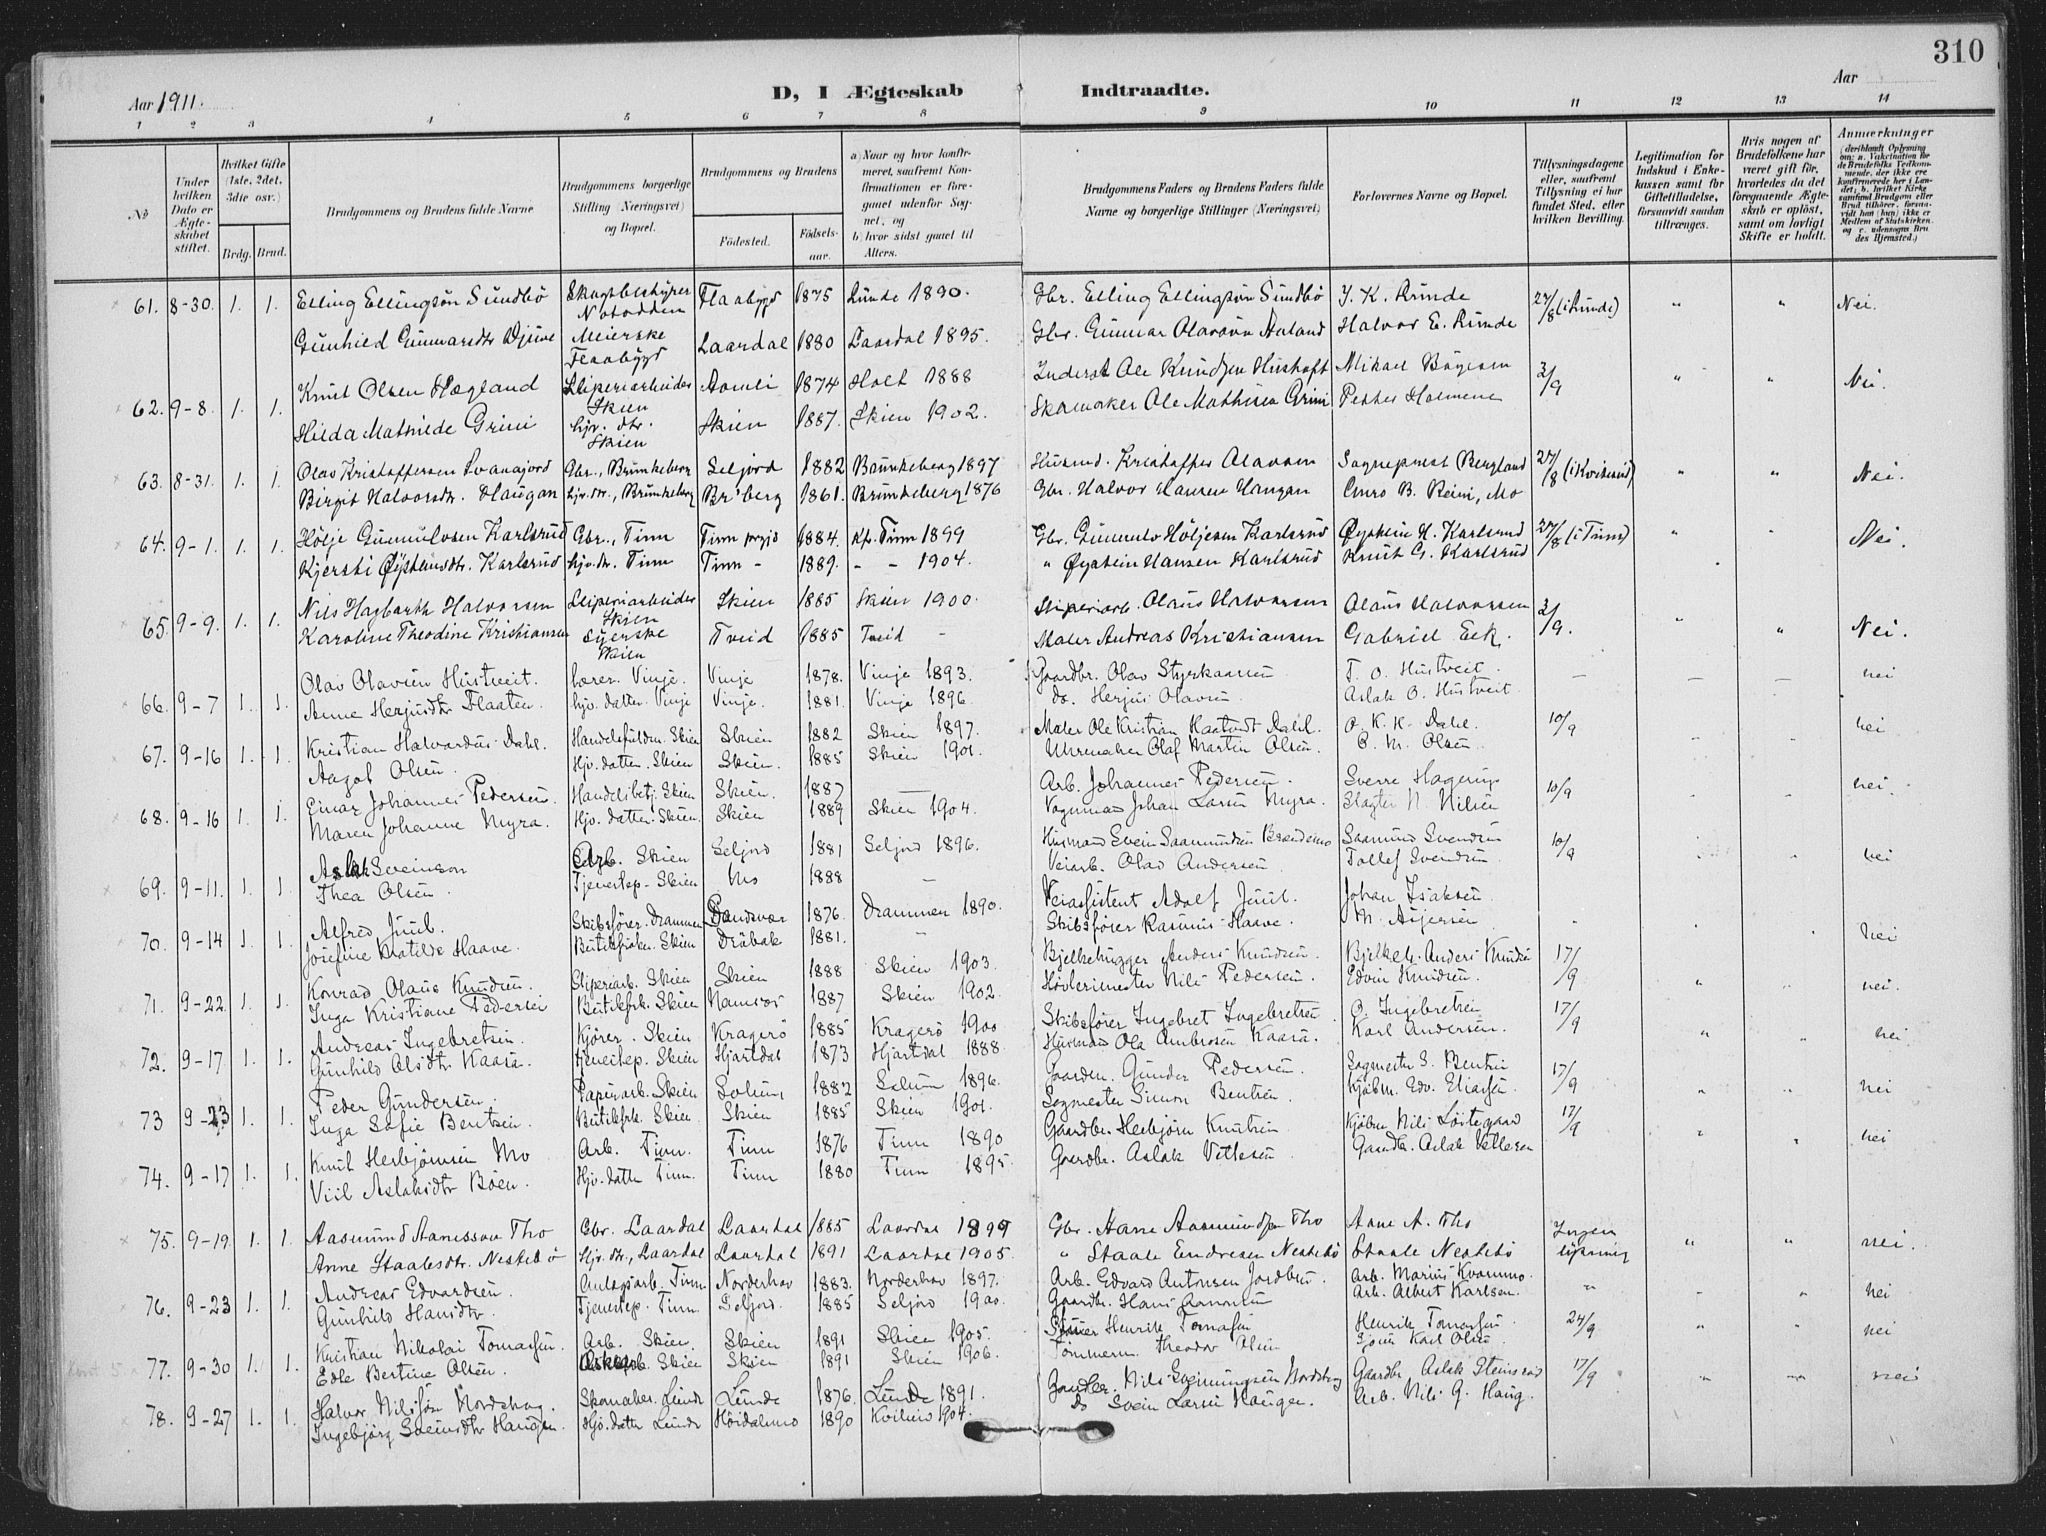 310
Aar 1911.
D, I Ægteskab Indtraadte.
Aar
1 2 3 4 5 6 7 8 9 10 11 12 13 14
No
Under hvilken Dato er Ægteskabet stiftet.
Hvilket Gifte (1ste, 2det, 3die osv.)
Brdg. Brud.
Brudgommens og Brudens fulde Navne
Brudgommens borgerlige Stilling (Næringsvei) og Bopæl.
Brudgommens og Brudens
Fødested.
Fødselsaar.
a) Naar og hvor konfirmeret, saafremt Konfirmationen er foregaaet udenfor Sognet, og
b) hvor sidst gaaet til Alters.
Brudgommens Faders og Brudens Faders fulde Navne og borgerlige Stillinger (Næringsvei)
Forlovernes Navne og Bopæl.
Tillysningsdagene eller, saafremt Tillysning ei har fundet Sted, efter hvilken Bevilling.
Legitimation for Indskud i Enkekassen samt for Giftetilladelse, forsaavidt saadan tiltrænges.
Hvis nogen af Brudefolkene har været gift før, hvorledes da det foregaaende Ægteskab er opløst, samt om lovligt Skifte er holdt.
Anmærkninger
61. 8-30. 1. 1. Elling Ellingsøn Sundbø Notodden Flaabygd 1875 Lunde 1890. Gbr. Elling Ellingsøn Sundbø J. K. Rinde 27/8 (i Lunde) " " Nei.
Gunhild Gunnarsdtr Djuve Meierske Flaabygd Laardal 1880 Laardal 1895. Gbr. Gunnar Olavsøn Halvor E. Rinde
62. 9-8. 1. 1. Knut Olsen Hægland Sliperiarbeider Skien Aamli 1874 Holt 1888 Inderst Ole Mikael Bøgesen 3/9 " " Nei.
Hilda Mathilde Grini hjv. dtr. Skien Skien 1887. Skien 1902. Skomaker Ole Mathisen Grini Petter Holmene
63. 8-31. 1. 1. Olav Kristoffersen Gbr., Brunkeberg Seljord 1882 Brunkeberg 1897 Husmd. Kristoffer Olavsen Sogneprest Bergland 27/8 (i Kviteseid) " " Nei.
Birgit Halvorsdtr. Haugan hjv. dtr., Brunkeberg Br'berg 1861. Brunkeberg 1876 Gbr. Halvor Hansen Haugan B. Reini, Mo
64. 9-1. 1. 1. Hølje Gunnulvsen Karlsrud Gbr., Tinn Tinn 1884. Tinn 1899 Gbr. Gunnulv Høljesen Karlsrud Øystein H. Karlsrud 27/8 (i Tinn) " " Nei.
Kjersti Øysteinsdtr. Karlsrud hjv. dr. Tinn Tinn - 1889. - - 1904. " Øystein Hansen Karlsrud Knut G. Karlsrud
65. 9-9. 1. 1. Nils Hagbarth Halvorsen Sliperiarbeider Skien Skien 1885 Skien 1900. Sliperiarb. Olaus Halvorsen Olaus Halvorsen 3/9. " " Nei.
Karoline Theodine Kristiansen Syerske Skien Tveid 1885 Tveid - Maler Andreas Kristiansen Gabriel Eek.
66. 9-7 1. 1. Olav Olavsen Hustveit. Lærer. Vinje. Vinje 1878. Vinje 1893. Gaardbr. Olav Styrkaarsen T. O. Hustveit. — — — nei
Anne Herjusdtr Flaaten. hjv. datter. Vinje Vinje. 1881. Vinje 1896. do. Herjus Olavsen Aslak O. Hustveit.
67. 9-16 1. 1. Kristian Halvardus Dahl. Skien Skien 1882 Skien 1897. Maler Ole Kristian Dahl. O. K. H. Dahl. 10/9 nei
Aagot Olsen. Hjv. datter. Skien Skien. 1885 Skien 1901. Uhrmaker Olaf Martin Olsen. O. M. Olsen.
68. 9-16 1. 1. Einar Johannes Pedersen. Handelsbetj. Skien Skien. 1887 — Arb. Johannes Pedersen. Sverre Hagerup 10/9 nei.
Maren Johanne Myra. Hjv. datter. Skien. Skien 1889 Skien 1904. Vognmand Johan Larsen Myra. Slagter N. Nilsen
69. 9-11. 1. 1. Aslak Sveinson Arb. Skien Seljord 1881 Seljord 1896. Husmand Svein Saamundsen Saamund Svendsen 10/9 nei
Thea Olsen. Tjenestep. Skien Mo 1888 — Veiarb. Olav Andersen Tollef Svendsen.
70. 9-14 1. 1. Alfred Juul. Skibsfører. Drammen Sandsvær 1876. Drammen 1890. Veiassistent Adolf Juul. Johan Isaksen nei
Josefine Klotilde Haave. Butikfrøken. Skien Drøbak 1881. — Skibsfører Rasmus Haave. M.
71. 9-22. 1. 1. Konrad Olaus Knudsen. Sliperiarb. Skien Skien 1888 Skien 1903. Bjelkehugger Anders Knudsen. Bjelkeh. Anders Knudsen 17/9 nei.
Inga Kristiane Pedersen Butikfrk. Skien Namsos 1887 Skien 1902. Høvlerimester Nils Pedersen. Edvin Knudsen.
72. 9-17 1. 1. Andreas Ingebretsen. Kjører. Skien Kragerö 1885 Kragerö 1900 Skibsfører Ingebret Ingebretsen O. Ingebretsen 17/9 nei.
Gunhild Olsdtr Kaasa. Tjenestep. Skien Hjartdal 1873 Hjartdal 1888. Husmand Ola Ambrosen Kaasa. Karl Andersen.
73 9-23 1. 1. Peder Gundersen. Papirarb. Skien Solum 1882 Solum 1896. Gaardm. Gunder Pedersen. Sagmester S. Bentsen 17/9 nei
Inga Sofie Bentsen. Butikfrk. Skien Skien 1885 Skien 1901. Sagmester Simon Bentsen. Kjøbm. Edv. Eliassen.
74. 9-17 1. 1. Knut Herbjørnsen Mo Arb. Tinn. Tinn 1876 Tinn 1890 Gaardbr. Herbjørn Knutsen Kjøbm Nils Løstegaard 17/9 nei
Viil Aslaksdtr Böen. Hjv. datter Tinn. Tinn 1880 Tinn 1895. Gaardbr. Aslak Vetlesen Gaardbr. Aslak Vetlesen
75. 9-19 1. 1. Aasmund Aanesson Tho Gbr. Laardal Laardal 1885 Laardal 1899 Gbr. Aane Aasmundsen Tho Aane A. Tho Ingen lysning " " nei.
Anne Staalesdtr. Nestebø Hjv. dtr., Laardal Laardal 1891 Laardal 1905. " Staale Endresen Nestebø Staale Nestebø
76. 9-23 1. 1. Andreas Edvardsen. Anlægsarb. Tinn Norderhov 1883. Norderhov 1897. Arb. Edvard Antonsen Jordbru. Arb. Marius Kvammo. " nei
Gunhild Hansdtr. Tjenestep. Tinn. Seljord. 1885 Seljord 1900. Gaardbr. Hans Arb. Albert Karlsen.
77. 9-30 1. 1. Kristian Nikolai Tomassen. Arb. Skien. Skien 1891 Skien 1905. Henrik Tomassen Henrik Tomassen 24/9 nei
Edle Bertine Olsen. Skien Skien 1891 Skien 1906. Tømmerm. Theodor Olsen Karl Olsen
78. 9-27 1. 1. Halvor Nilssøn Nordskog. Skomaker. Lunde Lunde 1876. Lunde 1891. Gaardbr. Nils Sveinungsen Nordskog Gaardbr Aslak Steinsrud 17/9 nei
Ingebjørg Sveinsdtr Haugen. Hjv. datter Lunde Høidalsmo 1890 Kviteseid 1904. do Svein Larsen Haugen. Arb. Nils G. Haug.